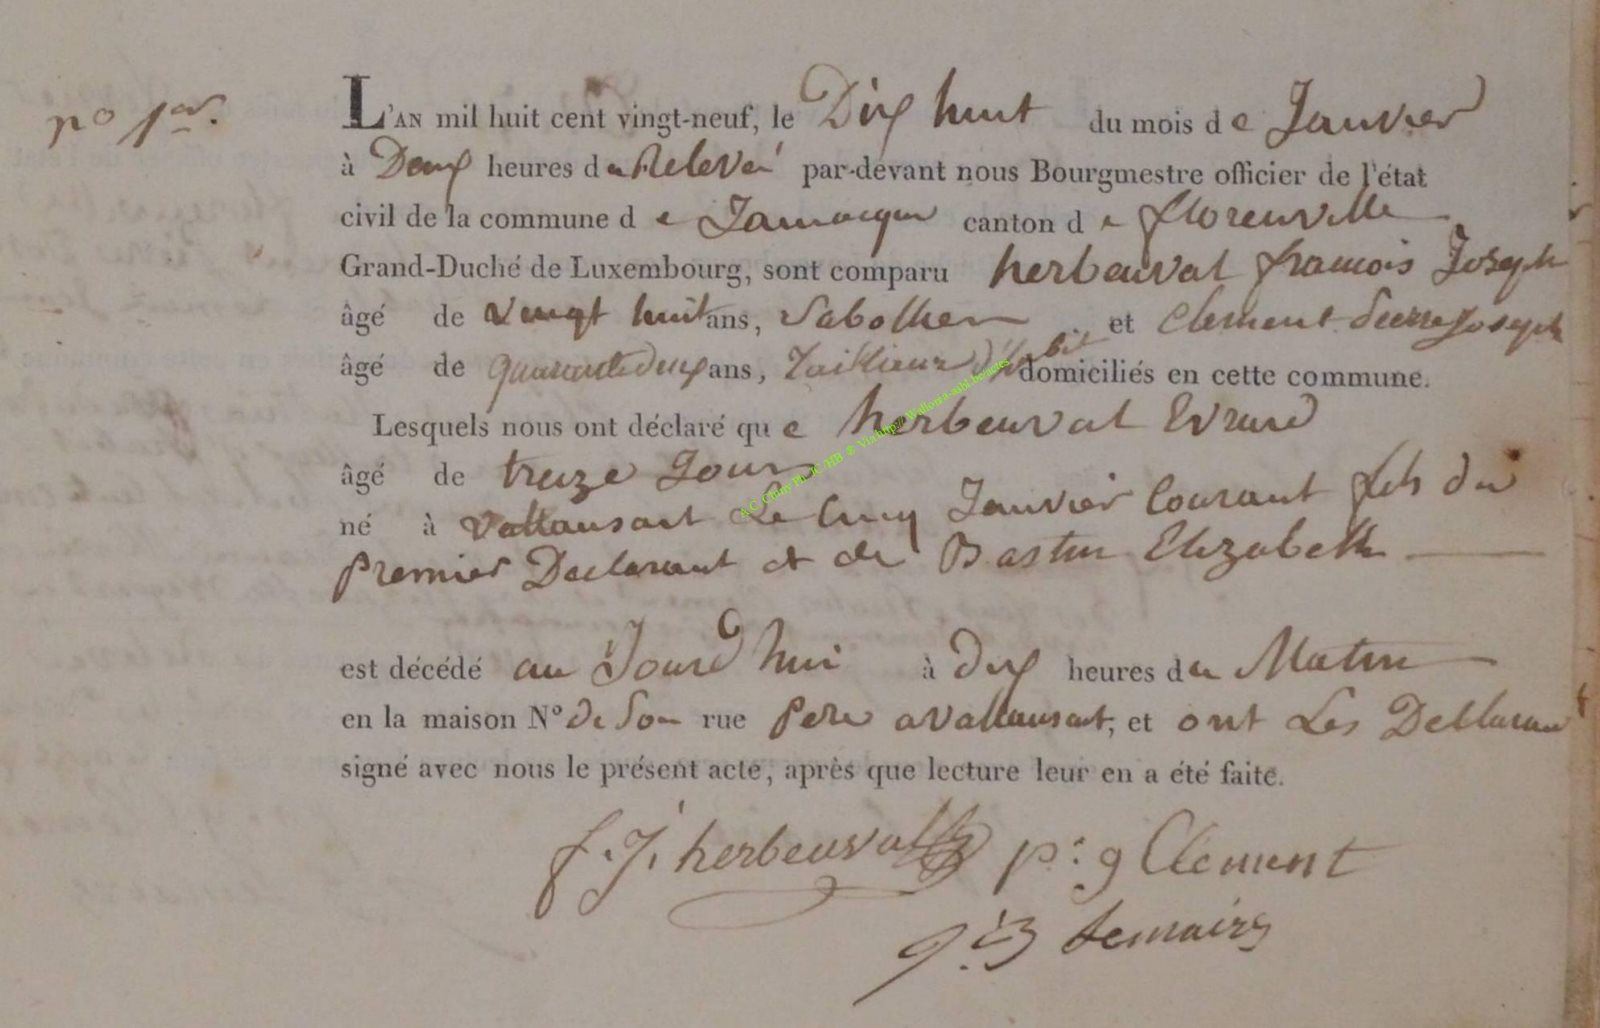 no 1er.
L'AN mil huit cent vingt-neuf, le Dix huit du mois de Janvier
à Deux heures de Relevé par-devant nous Bourgmestre officier de l'état
civil de la commune de Jamoigne canton de florenville
Grand-Duché de Luxembourg, sont comparu herbeuval francois Joseph
âgé de vingt huit ans, Sabothier et Clement Pierre Joseph
âgé de quarante deux ans, Taillieur d'habit domiciliés en cette commune.
Lesquels nous ont déclaré que herbeuval Evrard
âgé de treize Jour
né à Vallansart Le Cinq Janvier Courant fils du
Premier Declarant et de Bastin Elizabeth
est décédé au Jourd'hui à dix heures du Matin
en la maison N° de Son rue Pere a Vallansart, et ont Les Decllarant
signé avec nous le présent acte, après que lecture leur en a été faite.
f. J. herbeuval p: j Clément
Lemaire